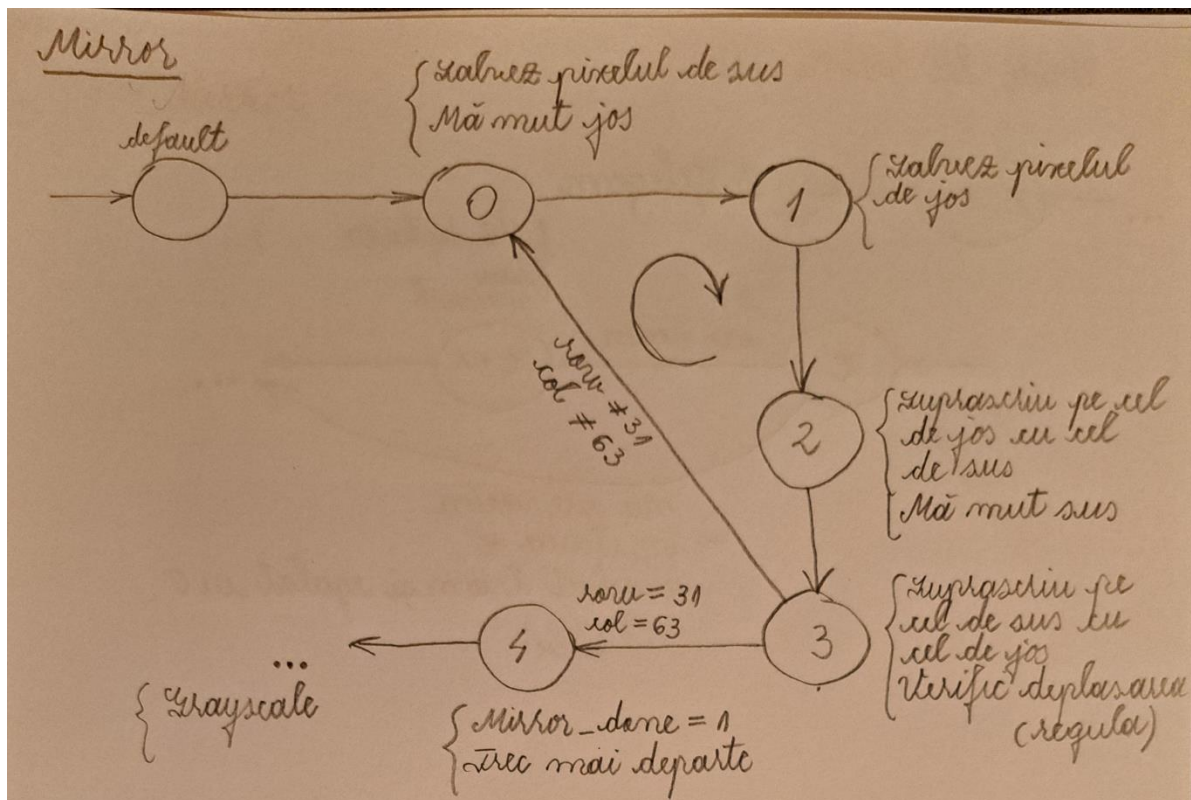 Mirror
default
Salvez pixelul de sus
Mă mut jos
0
1
Salvez pixelul
de jos
row ≠ 31
col ≠ 63
2
Suprascriu pe cel
de jos cu cel
de sus
Mă mut sus
3
Suprascriu pe
cel de sus cu
cel de jos
Verific deplasarea
(regula)
row = 31
col = 63
4
Mirror_done = 1
Trec mai departe
...
Grayscale